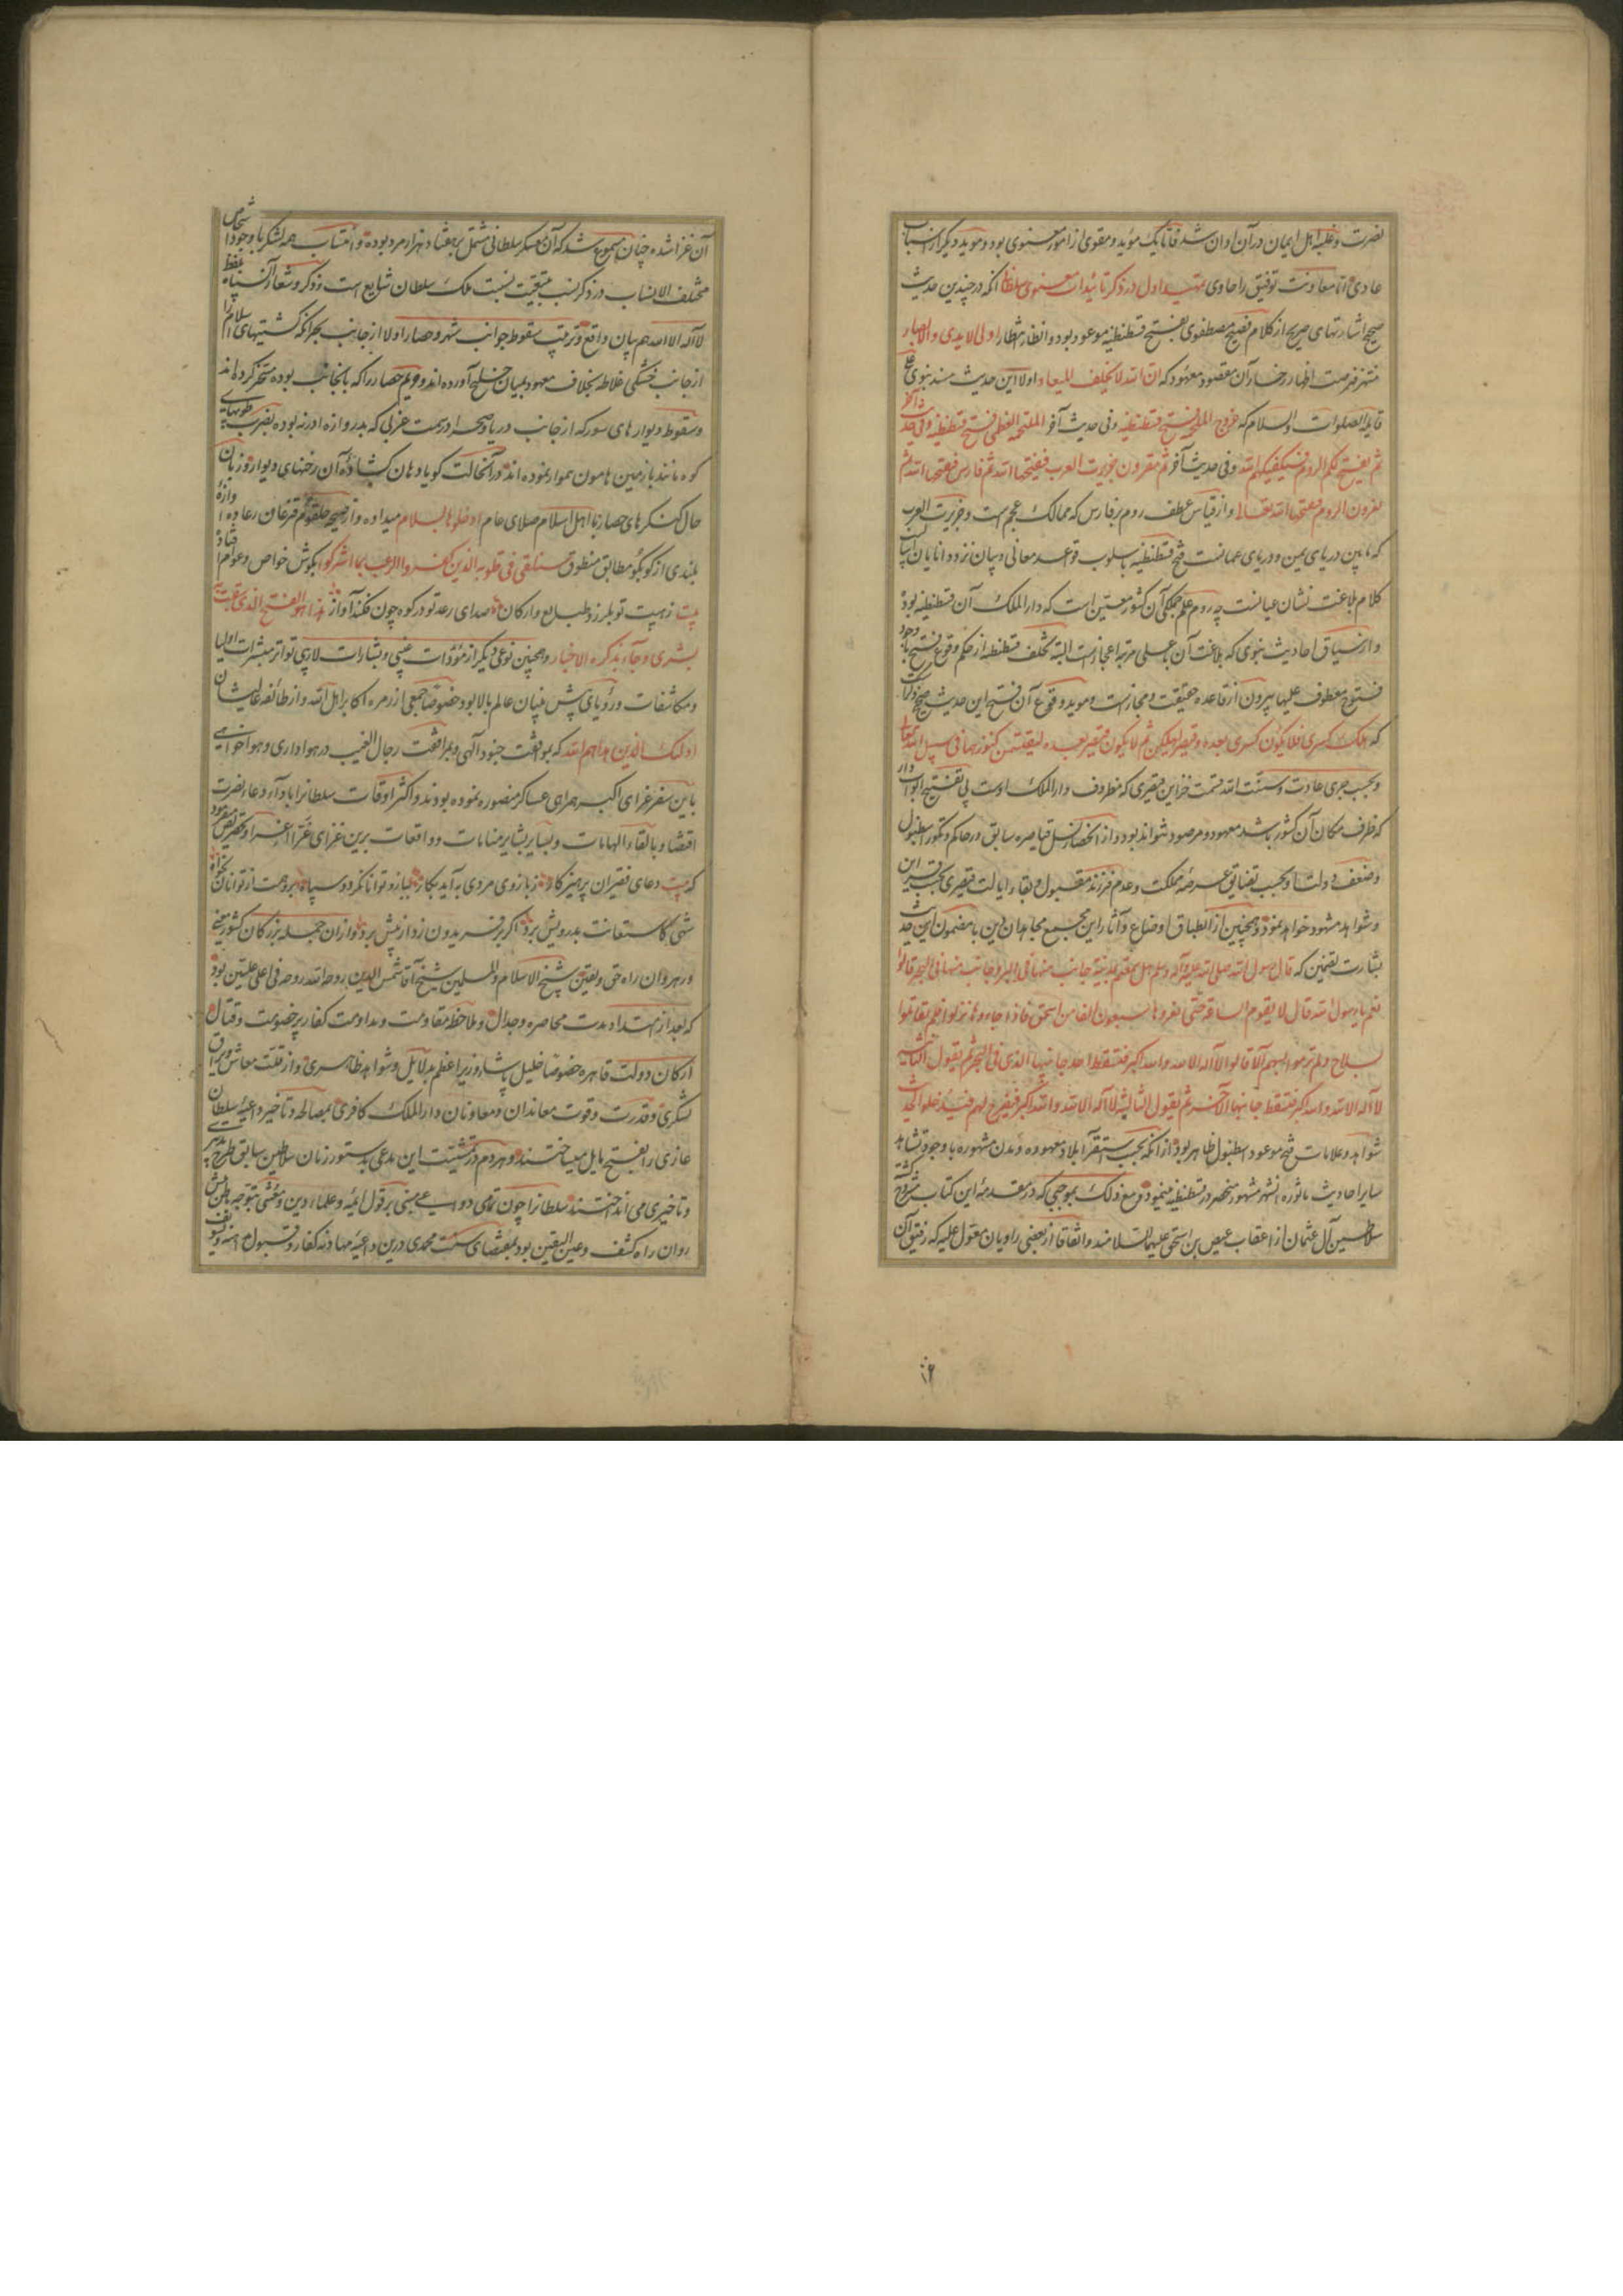 نصرت و غلبه اهل ایمان در آن اوان شد فاما یک مؤید و مقوی از امور معنوی بود و مؤید دیگر از اسباب
عادی اما معاونت توفیق را حاوی تمهید اول در ذکر تائیدات معنوی سلطانی آنکه در چندین حدیث
صحیح اشارتهای صریح از کلام فصیح مصطفوی بفتح قسطنطنیه موعود بود و انظار انتظار اولی الایدی و الابصار
منتهز فرصت اظهار رخسار آن مقصود معهود که ان الله لا یخلف المیعاد اولا این حدیث مسند نبوی علی
قایله الصلوات و السلام که خروج الملحمه فتح قسطنطنیه و فی حدیث آخر الملحمه العظمی فتح قسطنطنیه و فی حدیث آخر
ثم یفتح لکم الروم فیکفیکهم الله و فی حدیث آخر ثم تغزون جزیرت العرب فیفتحها الله ثم فارس فیفتحها الله ثم
تغزون الروم فیفتحها الله تعالی و از قیاس عطف روم بر فارس که ممالک عجم است و جزیرت العرب
که مابین دریای یمن و دریای عمانست فتح قسطنطنیه باسلوب قواعد معانی و بیان نزد دانایان اسالیب
کلام بلاغت نشان عیانست چه روم علم جملگی آن کشور معین است که دار الملک آن قسطنطنیه بود
و از سیاق احادیث نبوی که بلاغت آن باعلی مرتبه اعجازست البته تخلف قسطنطنیه از حکم وقوع فتح با وجود
فتوح معطوف علیها بیرون از قاعده حقیقت و مجازست و موید وقوع آن فتح این حدیث صحیح
که هلک کسری فلا یکون کسری بعده و قیصر لیهلکن ثم لا یکون قیصر بعده لیقسمن کنوزهما فی سبیل الله تعالی
و بحسب جری عادت و سنت الله قسمت خزاین قیصری که مظروف دار الملک اوست بی تفتیح ابواب دار
که ظرف مکان آن کشور باشد معهود و مرصود نتواند بود و از انحصار نسل قیاصره سابق در حاکم و تکور اسطنبول
و ضعف دولت او بحسب تضایق عرصه مملکت و عدم فرزند مقبول و بقاء ایالت قیصری بحسب قراین
و شواهد مشهود خواهد نمود و همچنین از انطباق اوضاع و آثار این مجمع مجاهدان دین با مضمون این حدیث
بشارت تضمین که قال رسول الله صلی الله علیه و آله وسلم هل سمعتم بمدینة جانب منها فی البر و جانب منها فی البحر قالوا
نعم یا رسول الله قال لا یقوم الساعة حتی یغزوها سبعون الفا من اسحق فاذا جاءوها نزلوا فلم یقاتلوا
بسلاح و لم ترموا بسهم الا قالوا لا اله الا الله و الله اکبر فتسقط احد جانبیها الذی فی البحر ثم یقول الثانیة
لا اله الا الله و الله اکبر فتسقط جانبها الآخر ثم یقول الثالثة لا اله الا الله و الله اکبر فیفرج لهم فیدخلوا الحدیث
شواهد و علامات فتح موعود اسطنبول ظاهر بود از آنکه بحسب استقرآ بلاد معهوده و مدن مشهوره با وجود تشاهد
سایر احادیث ماثوره اشهر مشهور منحصر در قسطنطنیه مینمود و مع ذلک بموجبی که در مقدمه این کتاب مشروح گشته
سلاطین آل عثمان از اعقاب عیص بن اسحق علیهما السلامند و اتفاقا از بعضی راویان معول علیه که رفیق آن
آن غزا شده چنان مسموع شد که آن عسکر سلطانی مشتمل بر هفتاد هزار مرد بوده و انتساب همه لشکر با وجود اشخاص
مختلف الانساب در ذکر نسب بتبعیت نسبت ملک سلطان شایع است و ذکر و شعار آن سپاه لفظ
لا اله الا الله هم بیان واقع و ترتیب سقوط جوانب شهر و حصار اولا از جانب بحر آنکه کشتیهای اسلام را
از جانب خشکی غلاطه بخلاف معهود بمیان خلیج آورده اند و دیگر حصار را که بانجانب بوده مسخر کرده اند
و سقوط دیوارهای سور که از جانب دریا و صحرا در سمت غربی که بدروازه ادرنه بوده بضرب طوبهای
کوه مانند با زمین هامون هموار نموده اند در آنحالت گویا دهان گشاده آن رخنهای دیوار و زبان
حال کنگرهای حصار با اهل اسلام صلای عام ادخلوها بسلام میداده و از صیحه حلقوم قزغان رعد آوازه
بلندی از کوبکو مطابق منطوق سنلقی فی قلوب الذین کفروا الرعب بما اشرکوا بگوش خواص و عوام افتاده
بیت ز هیبت تو بلرزد طبایع و ارکان صدای رعد تو در کوه چون فکند آواز هذا هو الفتح الذی
بشری و جآء بذکره الاخبار و همچنین نوعی دیگر از مؤیدات غیبی و بشارات لاریبی تواتر مبشرات اولیا
و مکاشفات و رؤیای پیش بنیان عالم بالا بود خصوصا جمعی از زمره اکابر اهل الله و از طائفه عالیشان
اولئک الذین هداهم الله که بموافقت جنود آلهی و بمرافقت رجال الغیب در هواداری و هواخواهی
باین سفر غزای اکبر همراهی عساکر منصوره نموده بودند و اکثر اوقات سلطانرا بامداد دعاء نصرت
اقتضا و بالقاء الهامات و بسایر بشایر منامات و واقعات برین غزای غرا اغرا و تحریض میفرمود
که بیت دعای فقیران پرهیز کار ز بازوی مردی به آید بکار نیازد توانا نگردد سپاه برو همت از ناتوانان بخواه
شهی کاستعانت بدرویش برد اگر بر فریدون زد از پیش برد و از آن جمله بزرگان کشور معنی
و رهروان راه حق و یقین شیخ الاسلام و المسلمین شیخ آقا شمس الدین روح الله روحه فی اعلی علیین بود
که بعد از امتداد مدت محاصره و جدال و ملاحظه مقاومت و مداومت کفار بر خصومت و قتال
ارکان دولت قاهره خصوصا خلیل پاشاء وزیر اعظم بدلایل و شواهد ظاهری و از قلت معاش و یراق
لشکری و قدرت و قوت معاندان و معاونان دار الملک کافری بمصالحه و تاخیر داعیه سلطان
غازی را بفتح مایل میساختند و هر دم در تمشیت این مدعی بدستور زمان سلاطین سابق طرح تدبیری
و تاخیری می انداختند سلطانرا چون تمامی دواعی مبنی بر قول ائمه و علماء دین و منشی بتوجه باطن
روان راه کشف و عین الیقین بود بمقتضای سنت محمدی درین داعیه مهادنه کفار و قبول